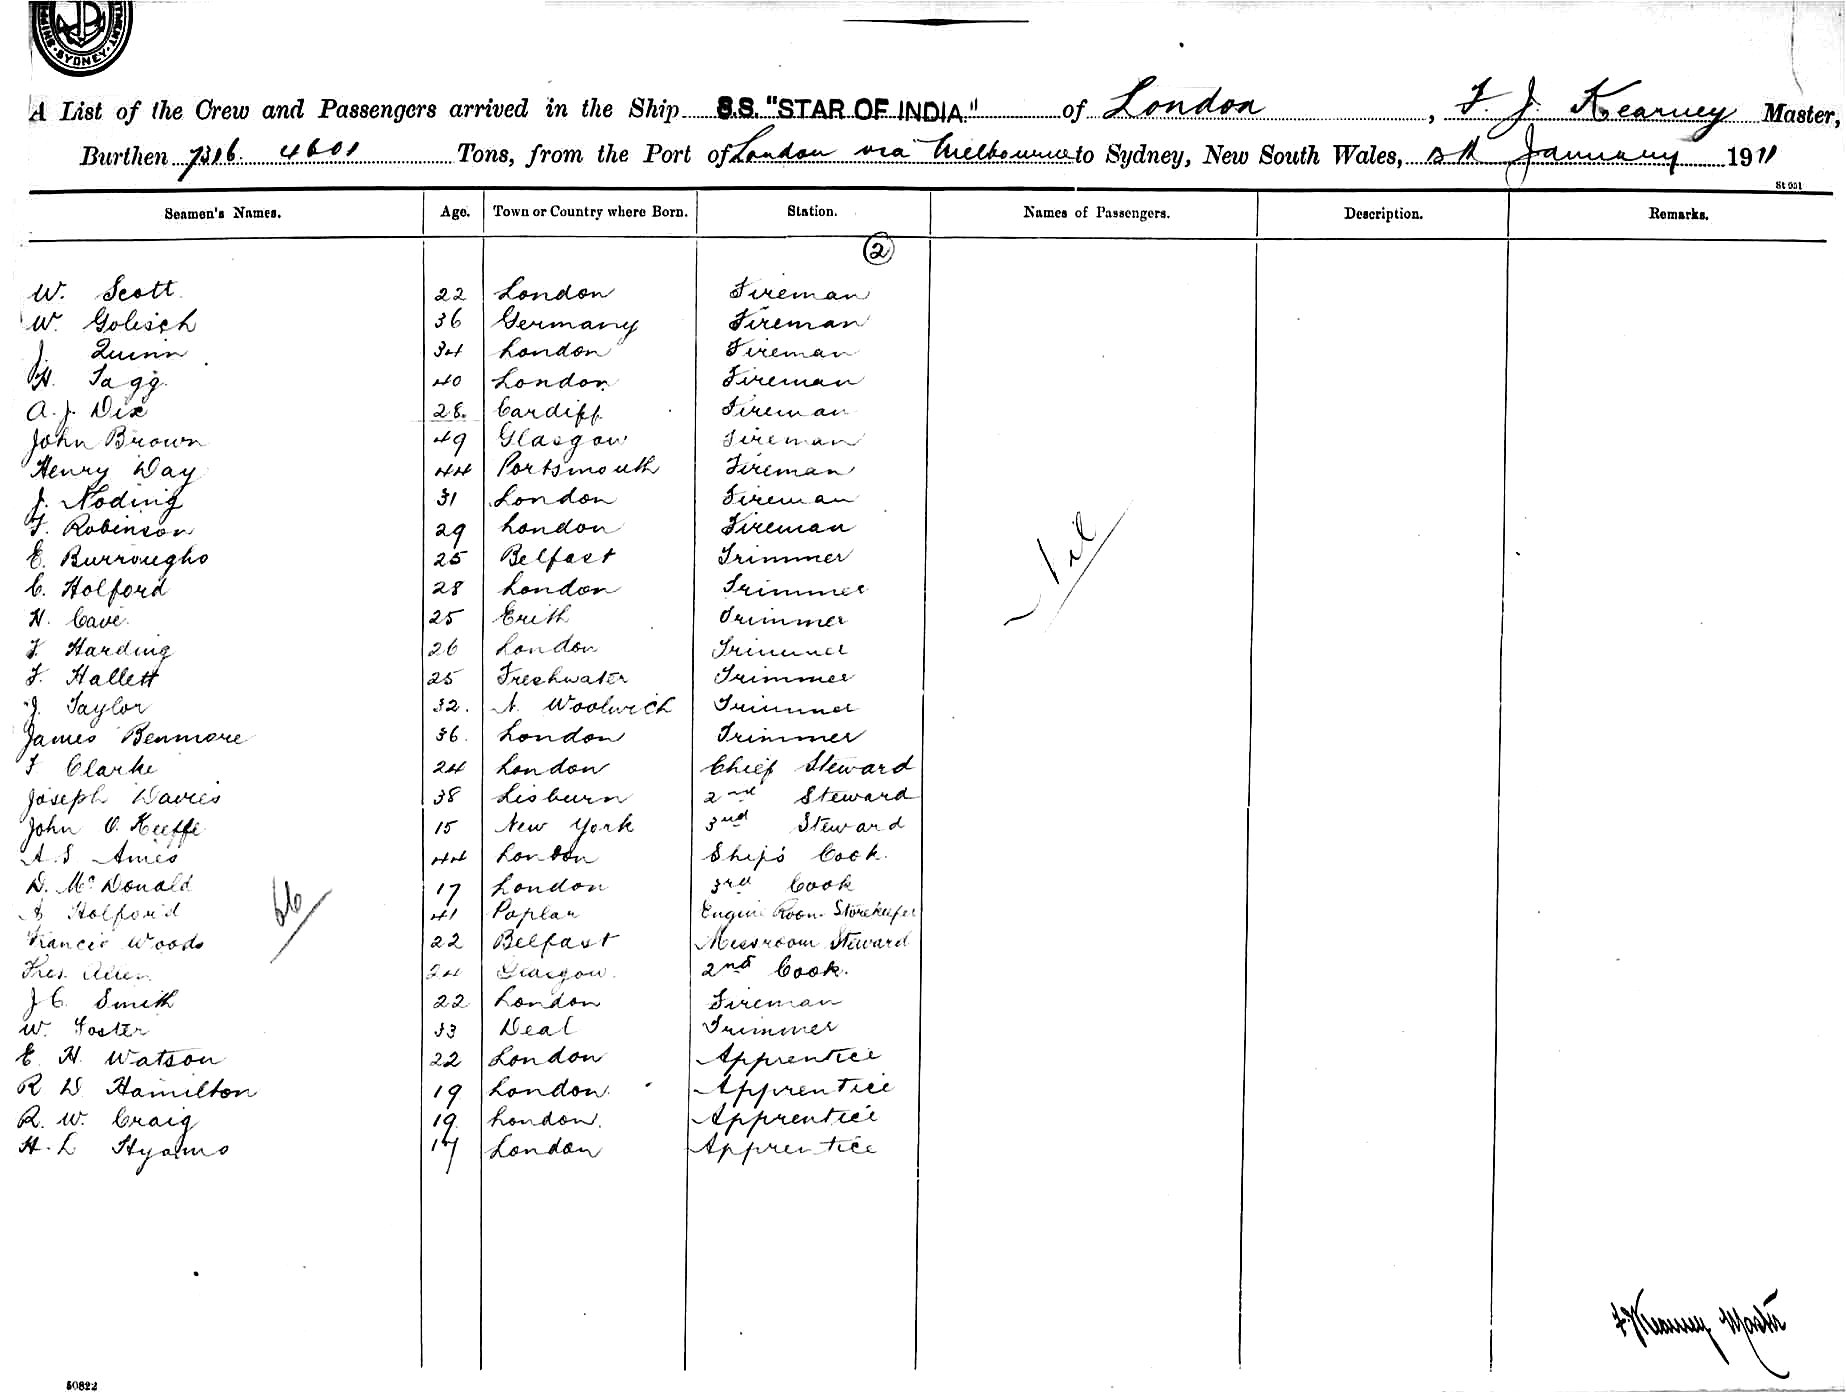 SYDNEY
A List of the Crew and Passengers arrived in the Ship S.S. "STAR OF INDIA." of London, F. J. Kearney Master,
Burthen 7316. 4601 Tons, from the Port of London via Melbourne to Sydney, New South Wales, 5th January 1911
St 051
Seamen's Names. Age. Town or Country where Born. Station. Names of Passengers. Description. Remarks.
2
W. Scott 22 London Fireman
W. Golisch 36 Germany Fireman
J. Quinn 34 London Fireman
H. Tagg. 40 London Fireman
A. J. Dix 28. Cardiff Fireman
John Brown 49 Glasgow Fireman
Henry Day 44 Portsmouth Fireman
J. Noding 31 London Fireman
F. Robinson 29 London Fireman
E. Burroughs 25 Belfast Trimmer
C. Holford 28 London Trimmer
H. Cave. 25 Erith Trimmer
F. Harding 26 London Trimmer
F. Hallett 25 Freshwater Trimmer
J. Taylor 32. N. Woolwich Trimmer
James Benmore 36. London Trimmer
F Clarke 24 London Chief Steward
Joseph Davies 38 Lisburn 2nd Steward
John O. Keeffe 15 New York 3rd Steward
A. S Ames 44 London Ship's Cook.
D. McDonald 17 London 3rd Cook
A Holford 41 Poplar Engine Room Storekeeper
Francis Woods 22 Belfast Messroom Steward
24 Glasgow. 2nd Cook.
J C. Smith 22 London Fireman
W. Foster 33 Deal Trimmer
E. H. Watson 22 London Apprentice
R D. Hamilton 19 London. Apprentice
R. W. Craig 19. London. Apprentice
H. L Hyams 17 London Apprentice
Nil
66
F. J. Kearney Master
50822